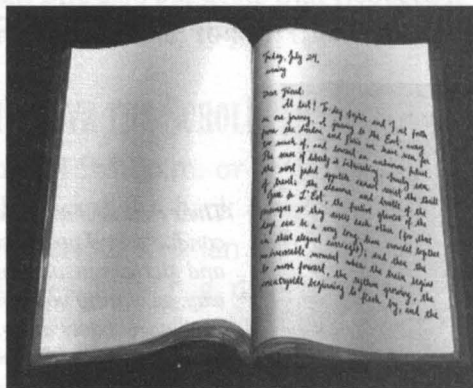 Friday, July 29,
evening
Dear friend:
At last! To day Sophie and I set forth
on our journey. A journey to the East, away
from the London and Paris we have seen far
too much of, and toward an unknown future.
The sense of liberty is intoxicating. Surely even
the most jaded appetite cannot resist the thrill
of travel; the clamour and bustle of the
Gare de L'Est, the furtive glances of the
passengers as they assess each other (for three
days can be a very long time crowded together
in these elegant carriages), and then the
inexpressible moment when the train begins
to move forward, the rythm growing, the
countryside beginning to flash by, and the